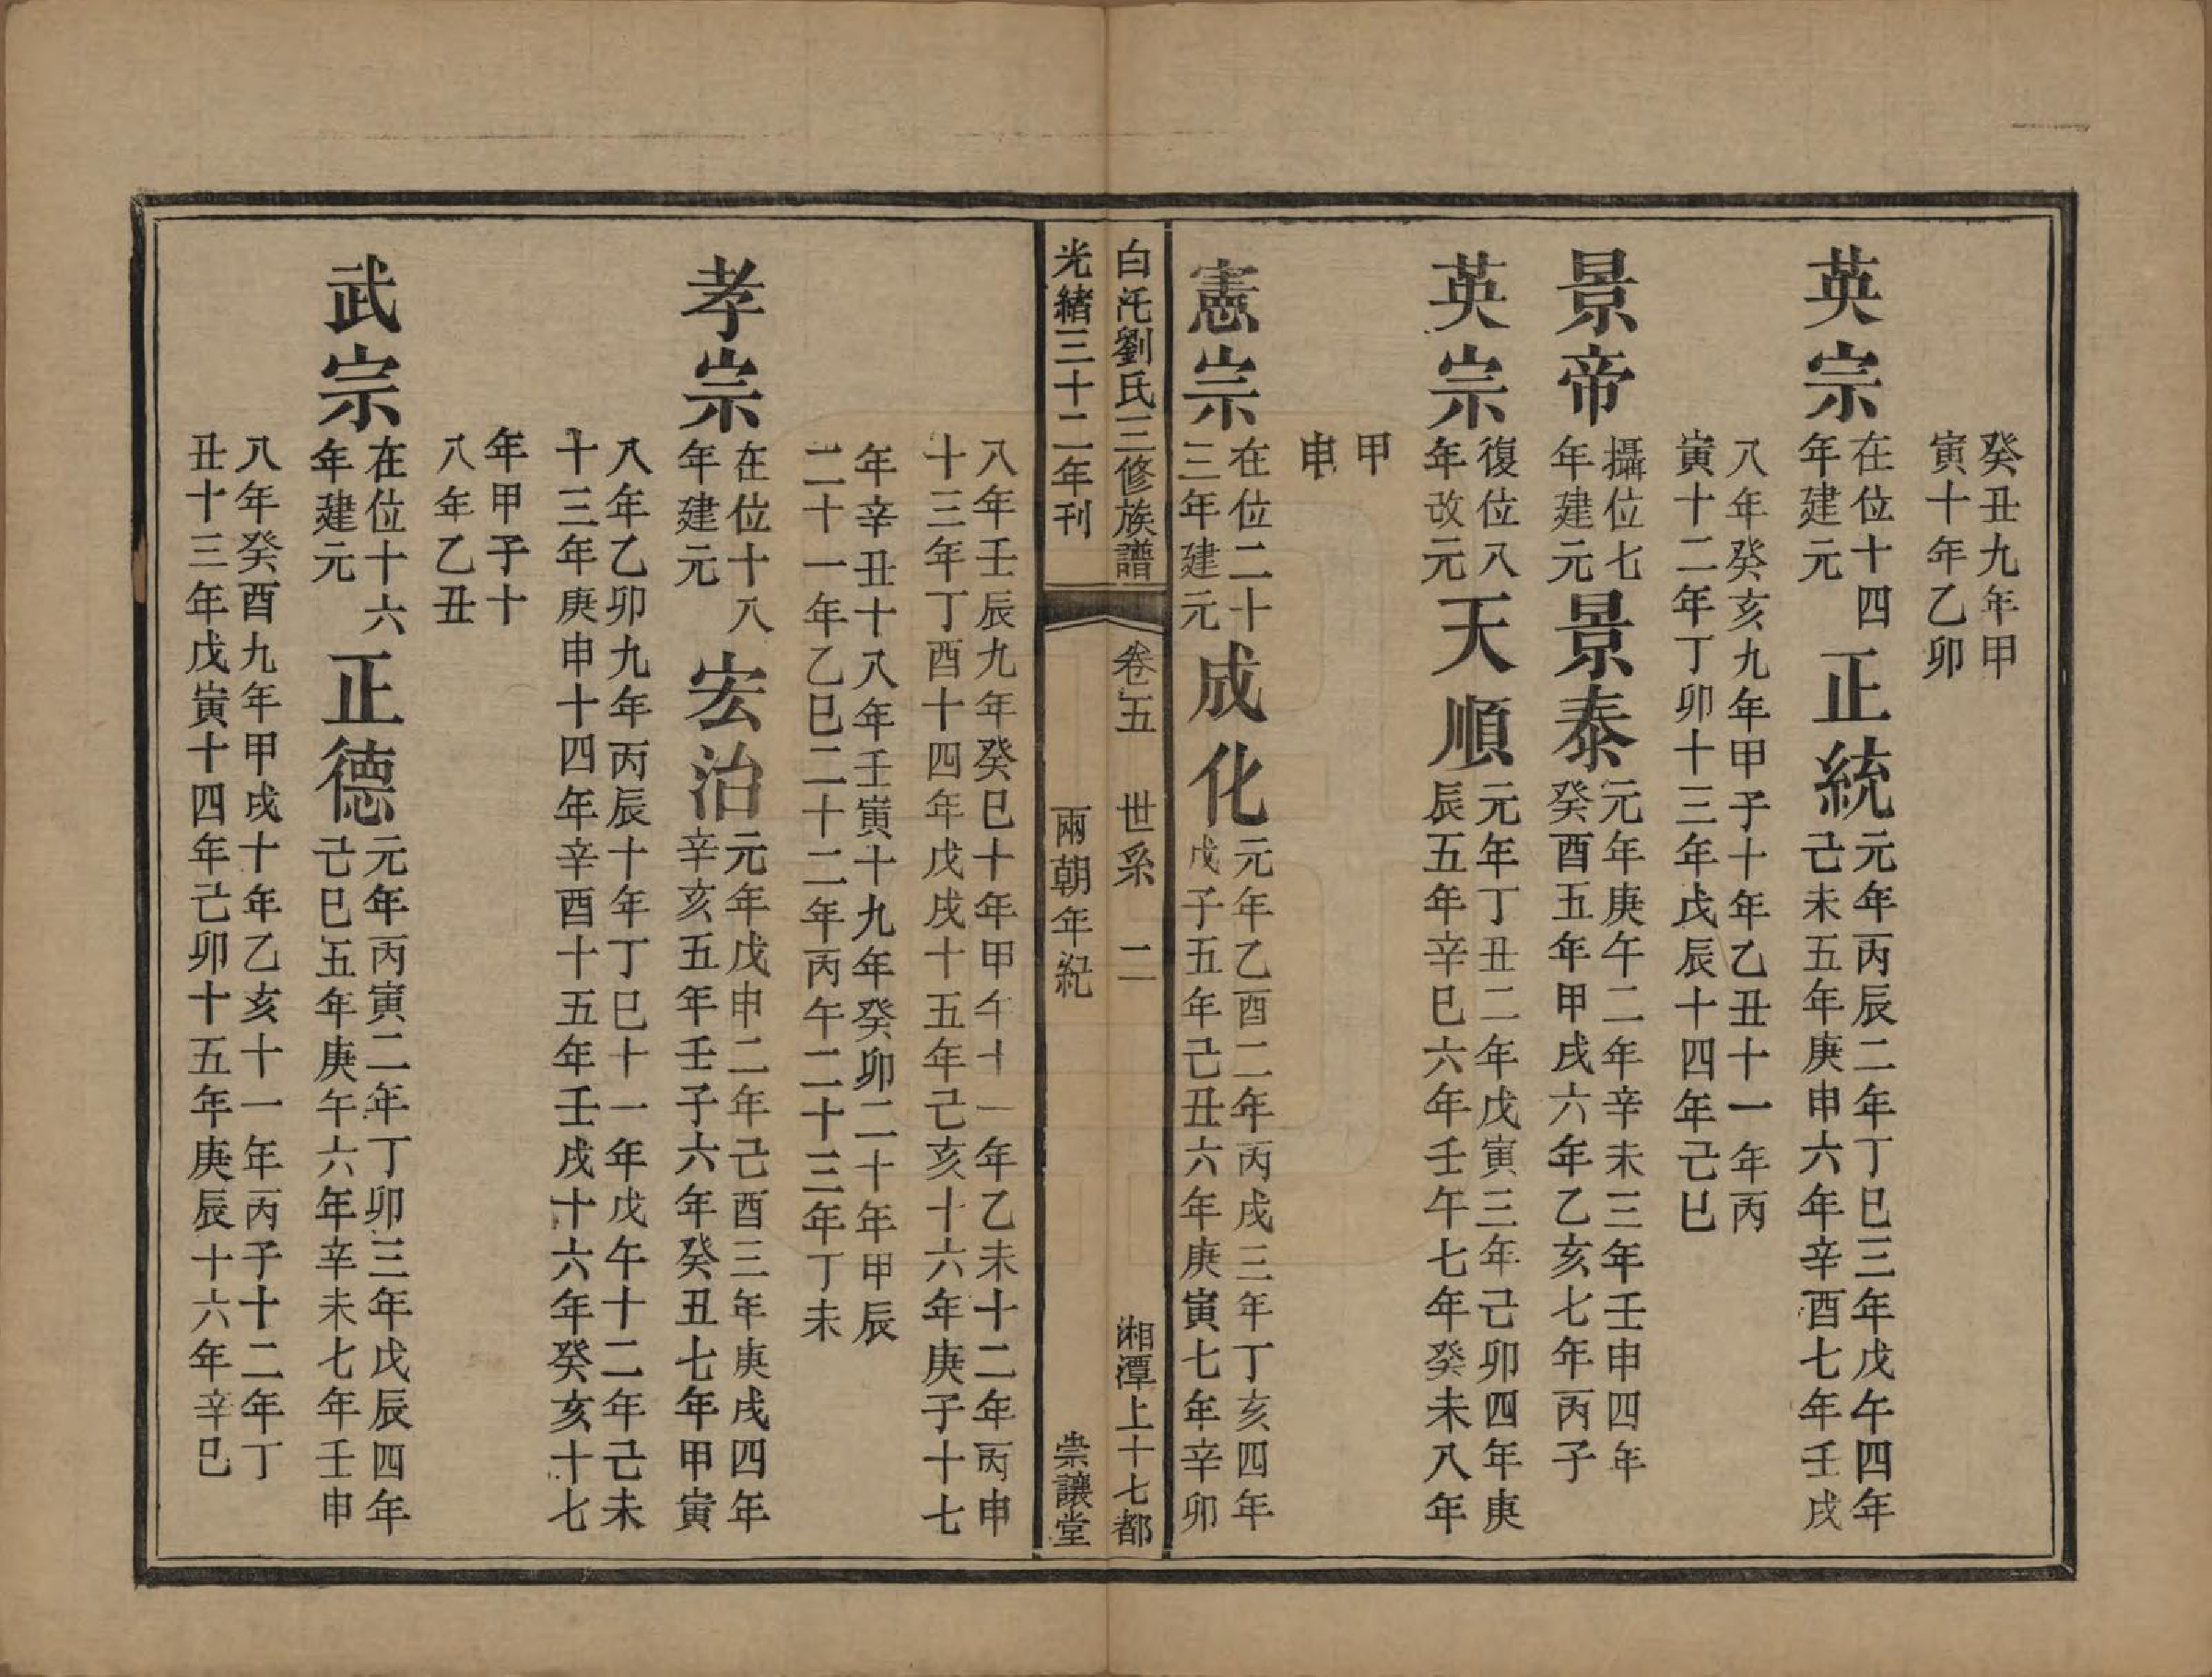 癸丑九年甲
寅十年乙卯
英宗
在位十四
年建元
正統
元年丙辰二年丁巳三年戊午四年
己未五年庚申六年辛酉七年壬戌
八年癸亥九年甲子十年乙丑十一年丙
寅十二年丁卯十三年戊辰十四年己巳
景帝
攝位七
年建元
景泰
元年庚午二年辛未三年壬申四年
癸酉五年甲戌六年乙亥七年丙子
英宗
復位八
年改元
天順
元年丁丑二年戊寅三年己卯四年庚
辰五年辛巳六年壬午七年癸未八年
甲
申
憲宗
在位二十
三年建元
成化
元年乙酉二年丙戌三年丁亥四年
戊子五年己丑六年庚寅七年辛卯
白汑劉氏三修族譜
卷五
世系
二
湘潭上十七都
光緒三十二年刊
兩朝年紀
崇讓堂
八年壬辰九年癸巳十年甲午十一年乙未十二年丙申
十三年丁酉十四年戊戌十五年己亥十六年庚子十七
年辛丑十八年壬寅十九年癸卯二十年甲辰
二十一年乙巳二十二年丙午二十三年丁未
孝宗
在位十八
年建元
宏治
元年戊申二年己酉三年庚戌四年
辛亥五年壬子六年癸丑七年甲寅
八年乙卯九年丙辰十年丁巳十一年戊午十二年己未
十三年庚申十四年辛酉十五年壬戌十六年癸亥十七
年甲子十
八年乙丑
武宗
在位十六
年建元
正德
元年丙寅二年丁卯三年戊辰四年
己巳五年庚午六年辛未七年壬申
八年癸酉九年甲戌十年乙亥十一年丙子十二年丁
丑十三年戊寅十四年己卯十五年庚辰十六年辛巳